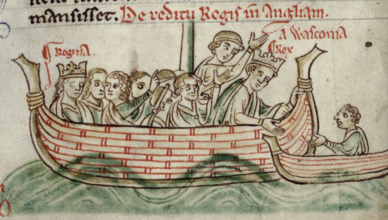 mansisset. De reditu Regis in Angliam.
a Wasconia
Regina.
Rex